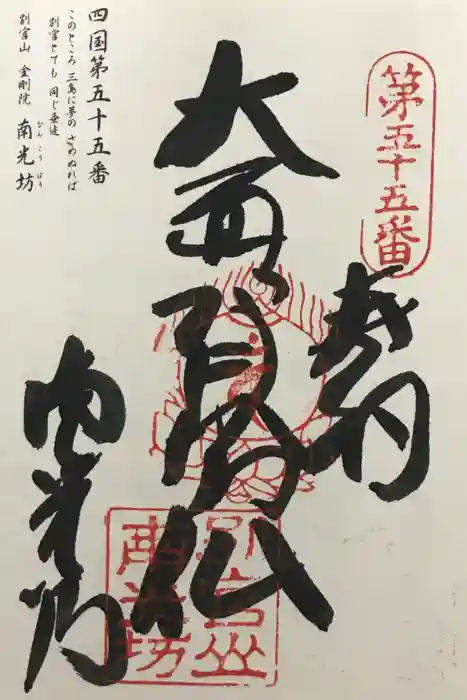 第五十五番
奉納
大通智勝仏
別宮山
南光坊
南光坊
四国第五十五番
このところ 三島に夢の さめぬれば
別宮とても 同じ垂迹
別宮山 金剛院 南光坊
なんこうぼう